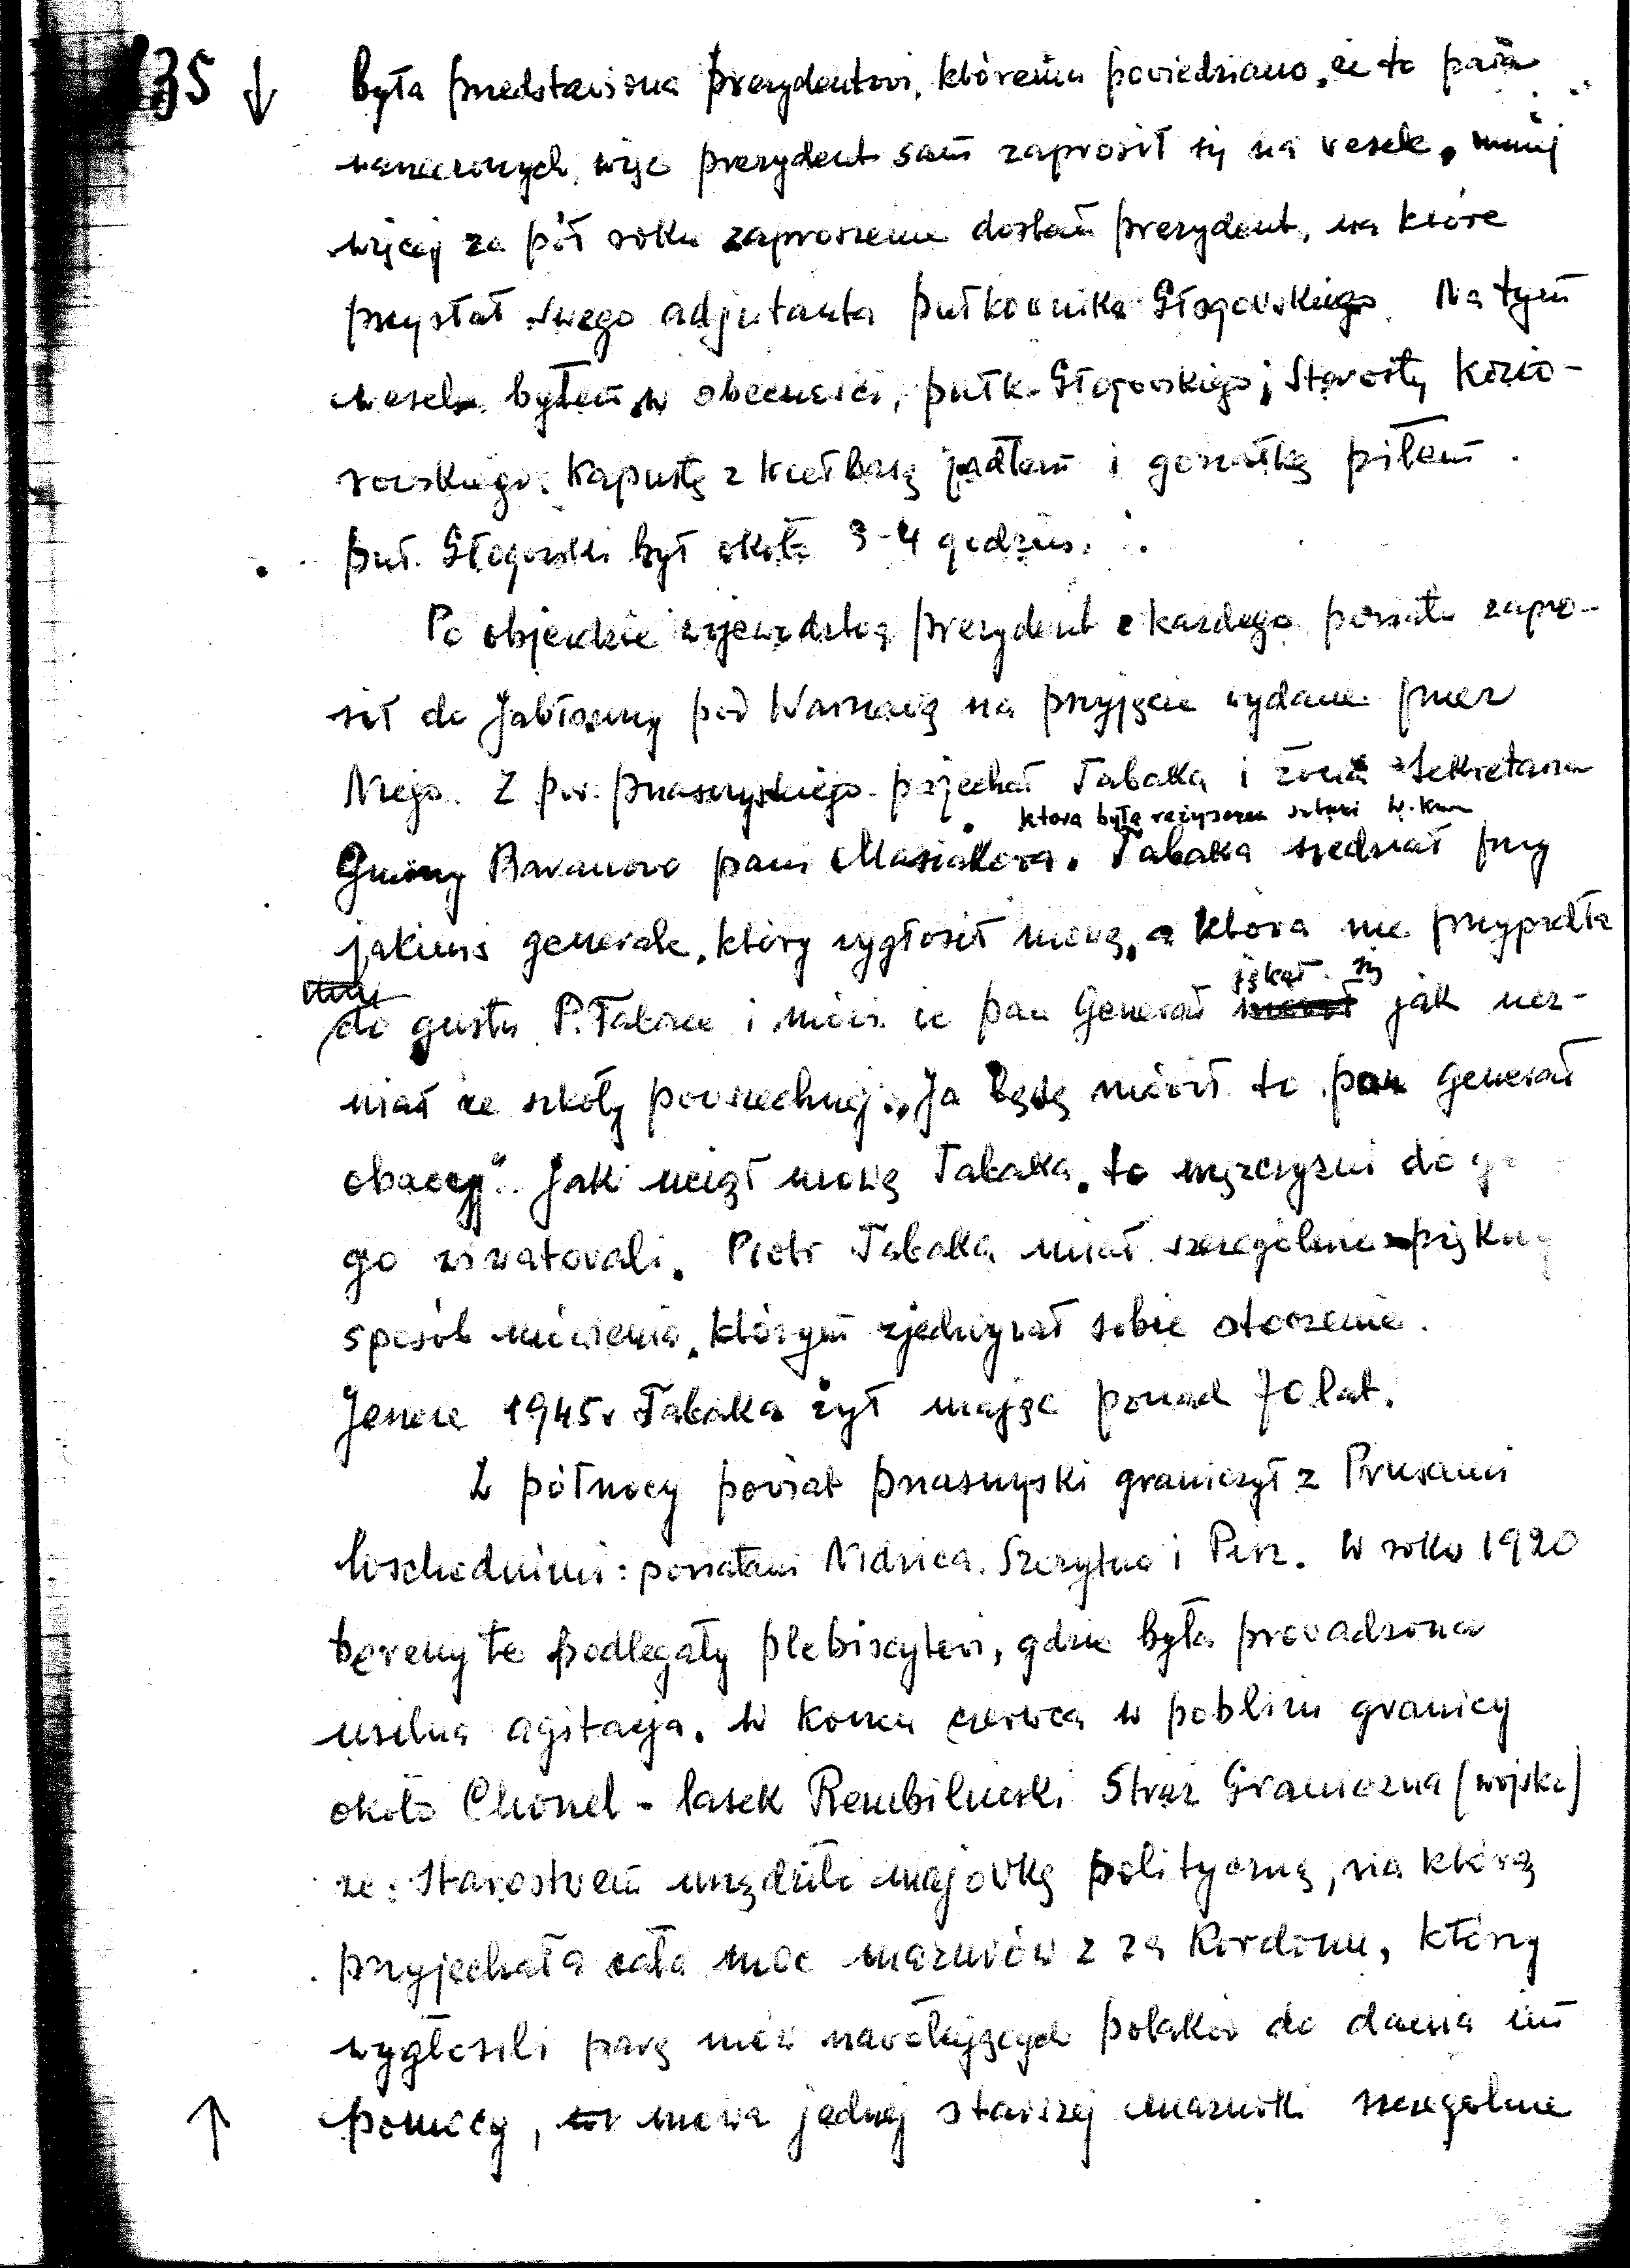 135 ↓
była przedstawiona prezydentowi, któremu powiedziano, że to para
narzeczonych, więc prezydent sam zaprosił się na wesele, mniej
więcej za pół roku zaproszenie dostał prezydent, na które
przysłał swego adjutanta pułkownika Głogowskiego. Na tym
weselu byłem w obecności, pułk. Głogowskiego i Starosty Kozio-
rowskiego. Kapustę z kiełbasą jadłem i gorzałkę piłem.
puł. Głogowski był około 3-4 godzin.
Po objeździe województwa prezydent z każdego powiatu zapro-
sił do Jabłonny pod Warszawą na przyjęcie wydane przez
Niego. Z pow. przasnyskiego pojechał Tabaka i żona Sekretarza
która była reżyserem sztuki
Gminy Baranowo pani Masiakowa. Tabaka siedział przy
jakimś generale, który wygłosił mowę, a która nie przypadła
do gustu P. Tabace i mówi że pan Generał jąkał się jak ucz-
niał ze szkoły powszechnej. „Ja będę mówił to pan generał
obaczy". Jak uciął mowę Tabaka, to mężczyźni do
go wiwatowali. Piotr Tabaka miał szczególnie piękny
sposób mówienia, którym zjednywał sobie otoczenie.
Jeszcze 1945 r Tabaka żył mając ponad 70 lat.
Z północy powiat przasnyski graniczył z Prusami
Wschodnimi: powiatami Nidzica, Szczytno i Pisz. W roku 1920
tereny te podlegały plebiscytowi, gdzie była prowadzona
usilna agitacja. W końcu czerwca w pobliżu granicy
około Chorzel - lasek Rembieliński Straż Graniczna (wojsko)
ze Starostwem urządziło majówkę polityczną, na którą
przyjechała cała moc mazurów z za Kordonu, którzy
wygłosili parę mów nawołujących polaków do dania im
↑ pomocy, mowa jednej starszej mazurki szczególnie